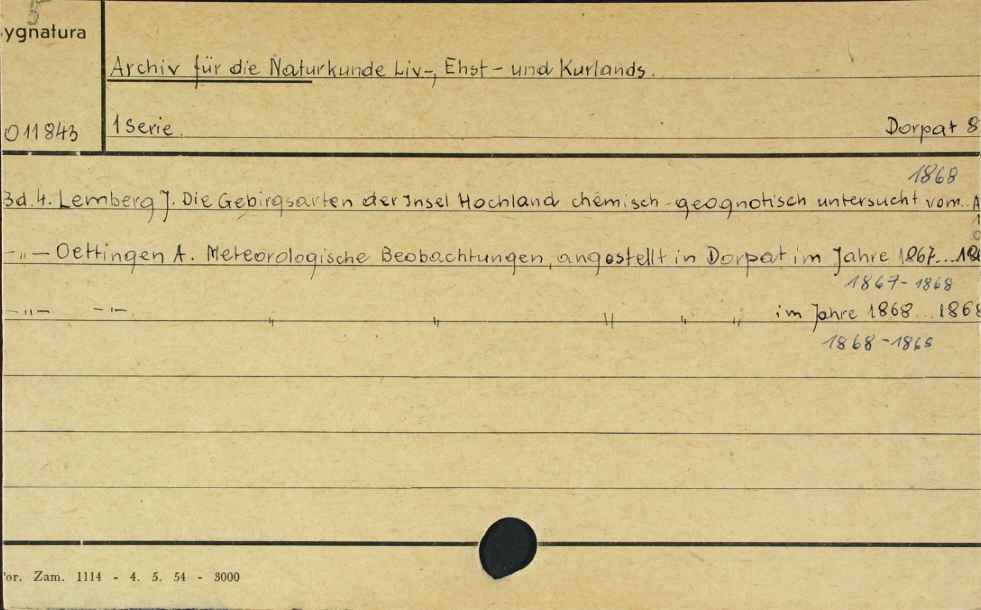 ygnatura
Archiv für die Naturkunde Liv-, Ehst- und Kurlands.
O 11843
1 Serie.
Dorpat 8
1868
Bd. 4. Lemberg J. Die Gebirgsarten der Insel Hochland chemisch-geognotisch untersucht vom. A
-"- Oettingen A. Meteorologische Beobachtungen, angestellt in Dorpat im Jahre 1867...
1867-1868
-"- -"- " " " " " im Jahre 1868...1868
1868-1868
or. Zam. 1114 - 4. 5. 54 - 3000